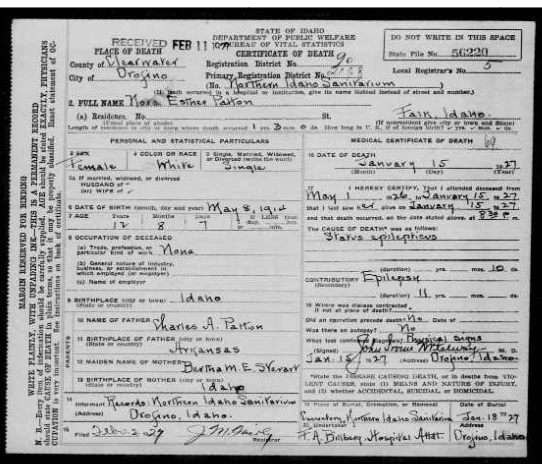 STATE OF IDAHO
DEPARTMENT OF PUBLIC WELFARE
BUREAU OF VITAL STATISTICS
RECEIVED FEB 11 1927
DO NOT WRITE IN THIS SPACE
PLACE OF DEATH
CERTIFICATE OF DEATH
State File No. 56220
County of Clearwater
Registration District No. 90
Local Registrar's No. 5
City of Orofino
Primary Registration District No.
(No. Northern Idaho Sanitarium
(If death occurred in a hospital or institution, give its name instead of street and number.)
2. FULL NAME Nora Esther Patton
(a) Residence. No. St. Idaho.
(Usual place of abode) (If nonresident give city or town and State)
PERSONAL AND STATISTICAL PARTICULARS
MEDICAL CERTIFICATE OF DEATH 69
3 SEX 4 COLOR OR RACE 5 Single, Married, Widowed, or Divorced (write the word)
Female White Single
16 DATE OF DEATH
January 15 1927
(Month) (Day) (Year)
5a If married, widowed, or divorced
HUSBAND of
(or) WIFE of
17 I HEREBY CERTIFY, That I attended deceased from
May 1 1926, to January 15, 1927
that I last saw her alive on January 15, 1927
and that death occurred, on the date stated above, at 8:30 P.m.
The CAUSE OF DEATH was as follows:
Status epilepticus
6 DATE OF BIRTH (month, day and year) May 8, 1914
7 AGE Years Months Days
12 8 7
8 OCCUPATION OF DECEASED
(a) Trade, profession, or particular kind of work None
(b) General nature of industry, business, or establishment in which employed (or employer)
(c) Name of employer
(duration) yrs. mos. 10 ds.
CONTRIBUTORY Epilepsy
(Secondary)
(duration) 11 yrs. mos. ds.
9 BIRTHPLACE (city or town) Idaho
(State or country)
18 Where was disease contracted
if not at place of death?
Did an operation precede death? No Date of
Was there an autopsy? No
What test confirmed diagnosis? Physical signs
10 NAME OF FATHER Charles A. Patton
11 BIRTHPLACE OF FATHER Arkansas
(State or country)
12 MAIDEN NAME OF MOTHER Bertha M. E. Stewart
13 BIRTHPLACE OF MOTHER Idaho
(State or country)
(Signed) M. D.
Jan. 15 1927 (Address) Orofino, Idaho
*State the DISEASE CAUSING DEATH, or in deaths from VIOLENT CAUSES, state (1) MEANS AND NATURE OF INJURY, and (2) whether ACCIDENTAL, SUICIDAL, or HOMICIDAL.
14 Informant Records: Northern Idaho Sanitarium
(Address) Orofino, Idaho.
19 Place of Burial, Cremation, or Removal Date of Burial
Cemetery, Northern Idaho Sanitarium Jan. 18 1927
15 Filed Feb
Registrar
20 Undertaker (Address)
Hospital Attdt. Orofino, Idaho
MARGIN RESERVED FOR BINDING
WRITE PLAINLY, WITH UNFADING INK—THIS IS A PERMANENT RECORD
N. B.—Every item of information should be carefully supplied. AGE should be stated EXACTLY. PHYSICIANS should state CAUSE OF DEATH in plain terms, so that it may be properly classified. Exact statement of OCCUPATION is very important. See instructions on back of certificate.
PARENTS